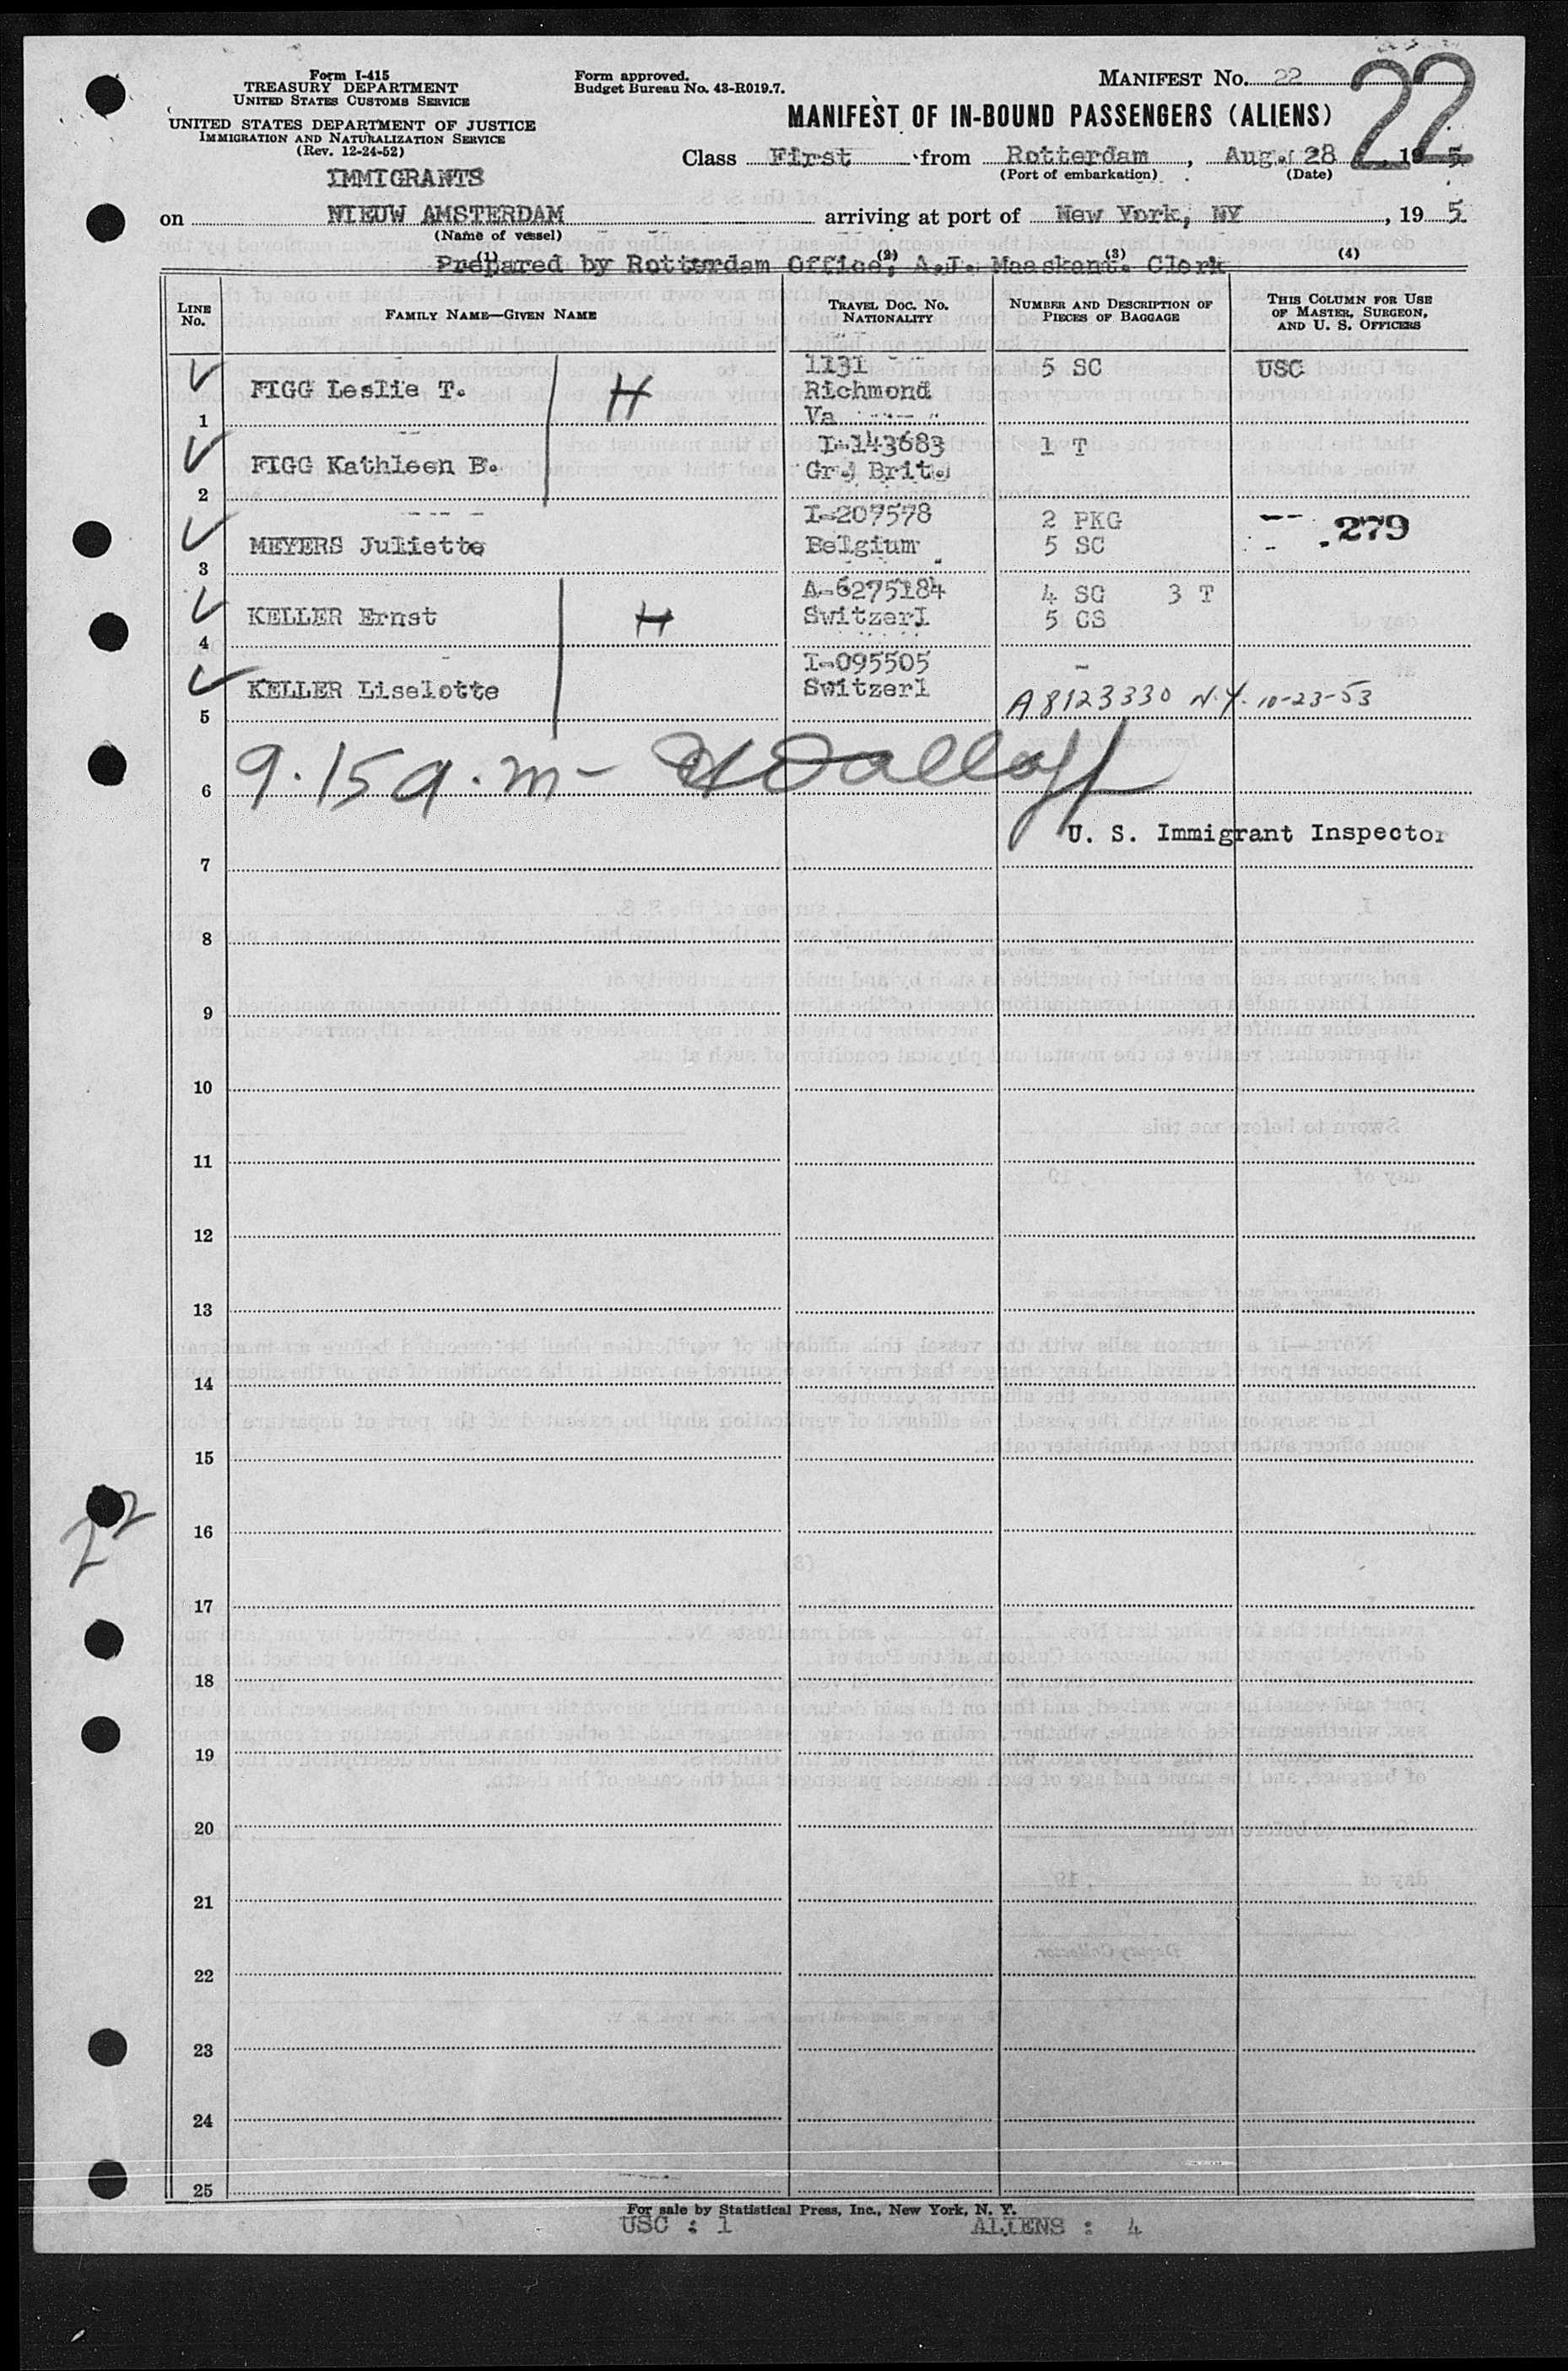 Form I-415
TREASURY DEPARTMENT
UNITED STATES CUSTOMS SERVICE
UNITED STATES DEPARTMENT OF JUSTICE
IMMIGRATION AND NATURALIZATION SERVICE
(Rev. 12-24-52)
Form approved.
Budget Bureau No. 43-R019.7.
MANIFEST No. 22
22
MANIFEST OF IN-BOUND PASSENGERS (ALIENS)
Class First from Rotterdam, Aug. 28, 195
(Port of embarkation) (Date)
IMMIGRANTS
on NIEUW AMSTERDAM arriving at port of New York, NY, 195
(Name of vessel)
Prepared by Rotterdam Office, A.J. Maaskant. Clerk
(1) (2) (3) (4)
LINE No. FAMILY NAME—GIVEN NAME TRAVEL DOC. No. NATIONALITY NUMBER AND DESCRIPTION OF PIECES OF BAGGAGE THIS COLUMN FOR USE OF MASTER, SURGEON, AND U. S. OFFICERS
1 FIGG Leslie T. H 1131 Richmond Va 5 SC USC
2 FIGG Kathleen B. I-143683 Gr. Brit. 1 T
3 MEYERS Juliette I-207578 Belgium 2 PKG 5 SC 279
4 KELLER Ernst H A-6275184 Switzerl 4 SC 3 T 5 CS
5 KELLER Liselotte I-095505 Switzerl - A8123330 N.Y. 10-23-53
6 9.15 a.m-
U. S. Immigrant Inspector
7
8
9
10
11
12
13
14
15
16
22
17
18
19
20
21
22
23
24
25
For sale by Statistical Press, Inc., New York, N. Y.
USC : 1 ALIENS : 4